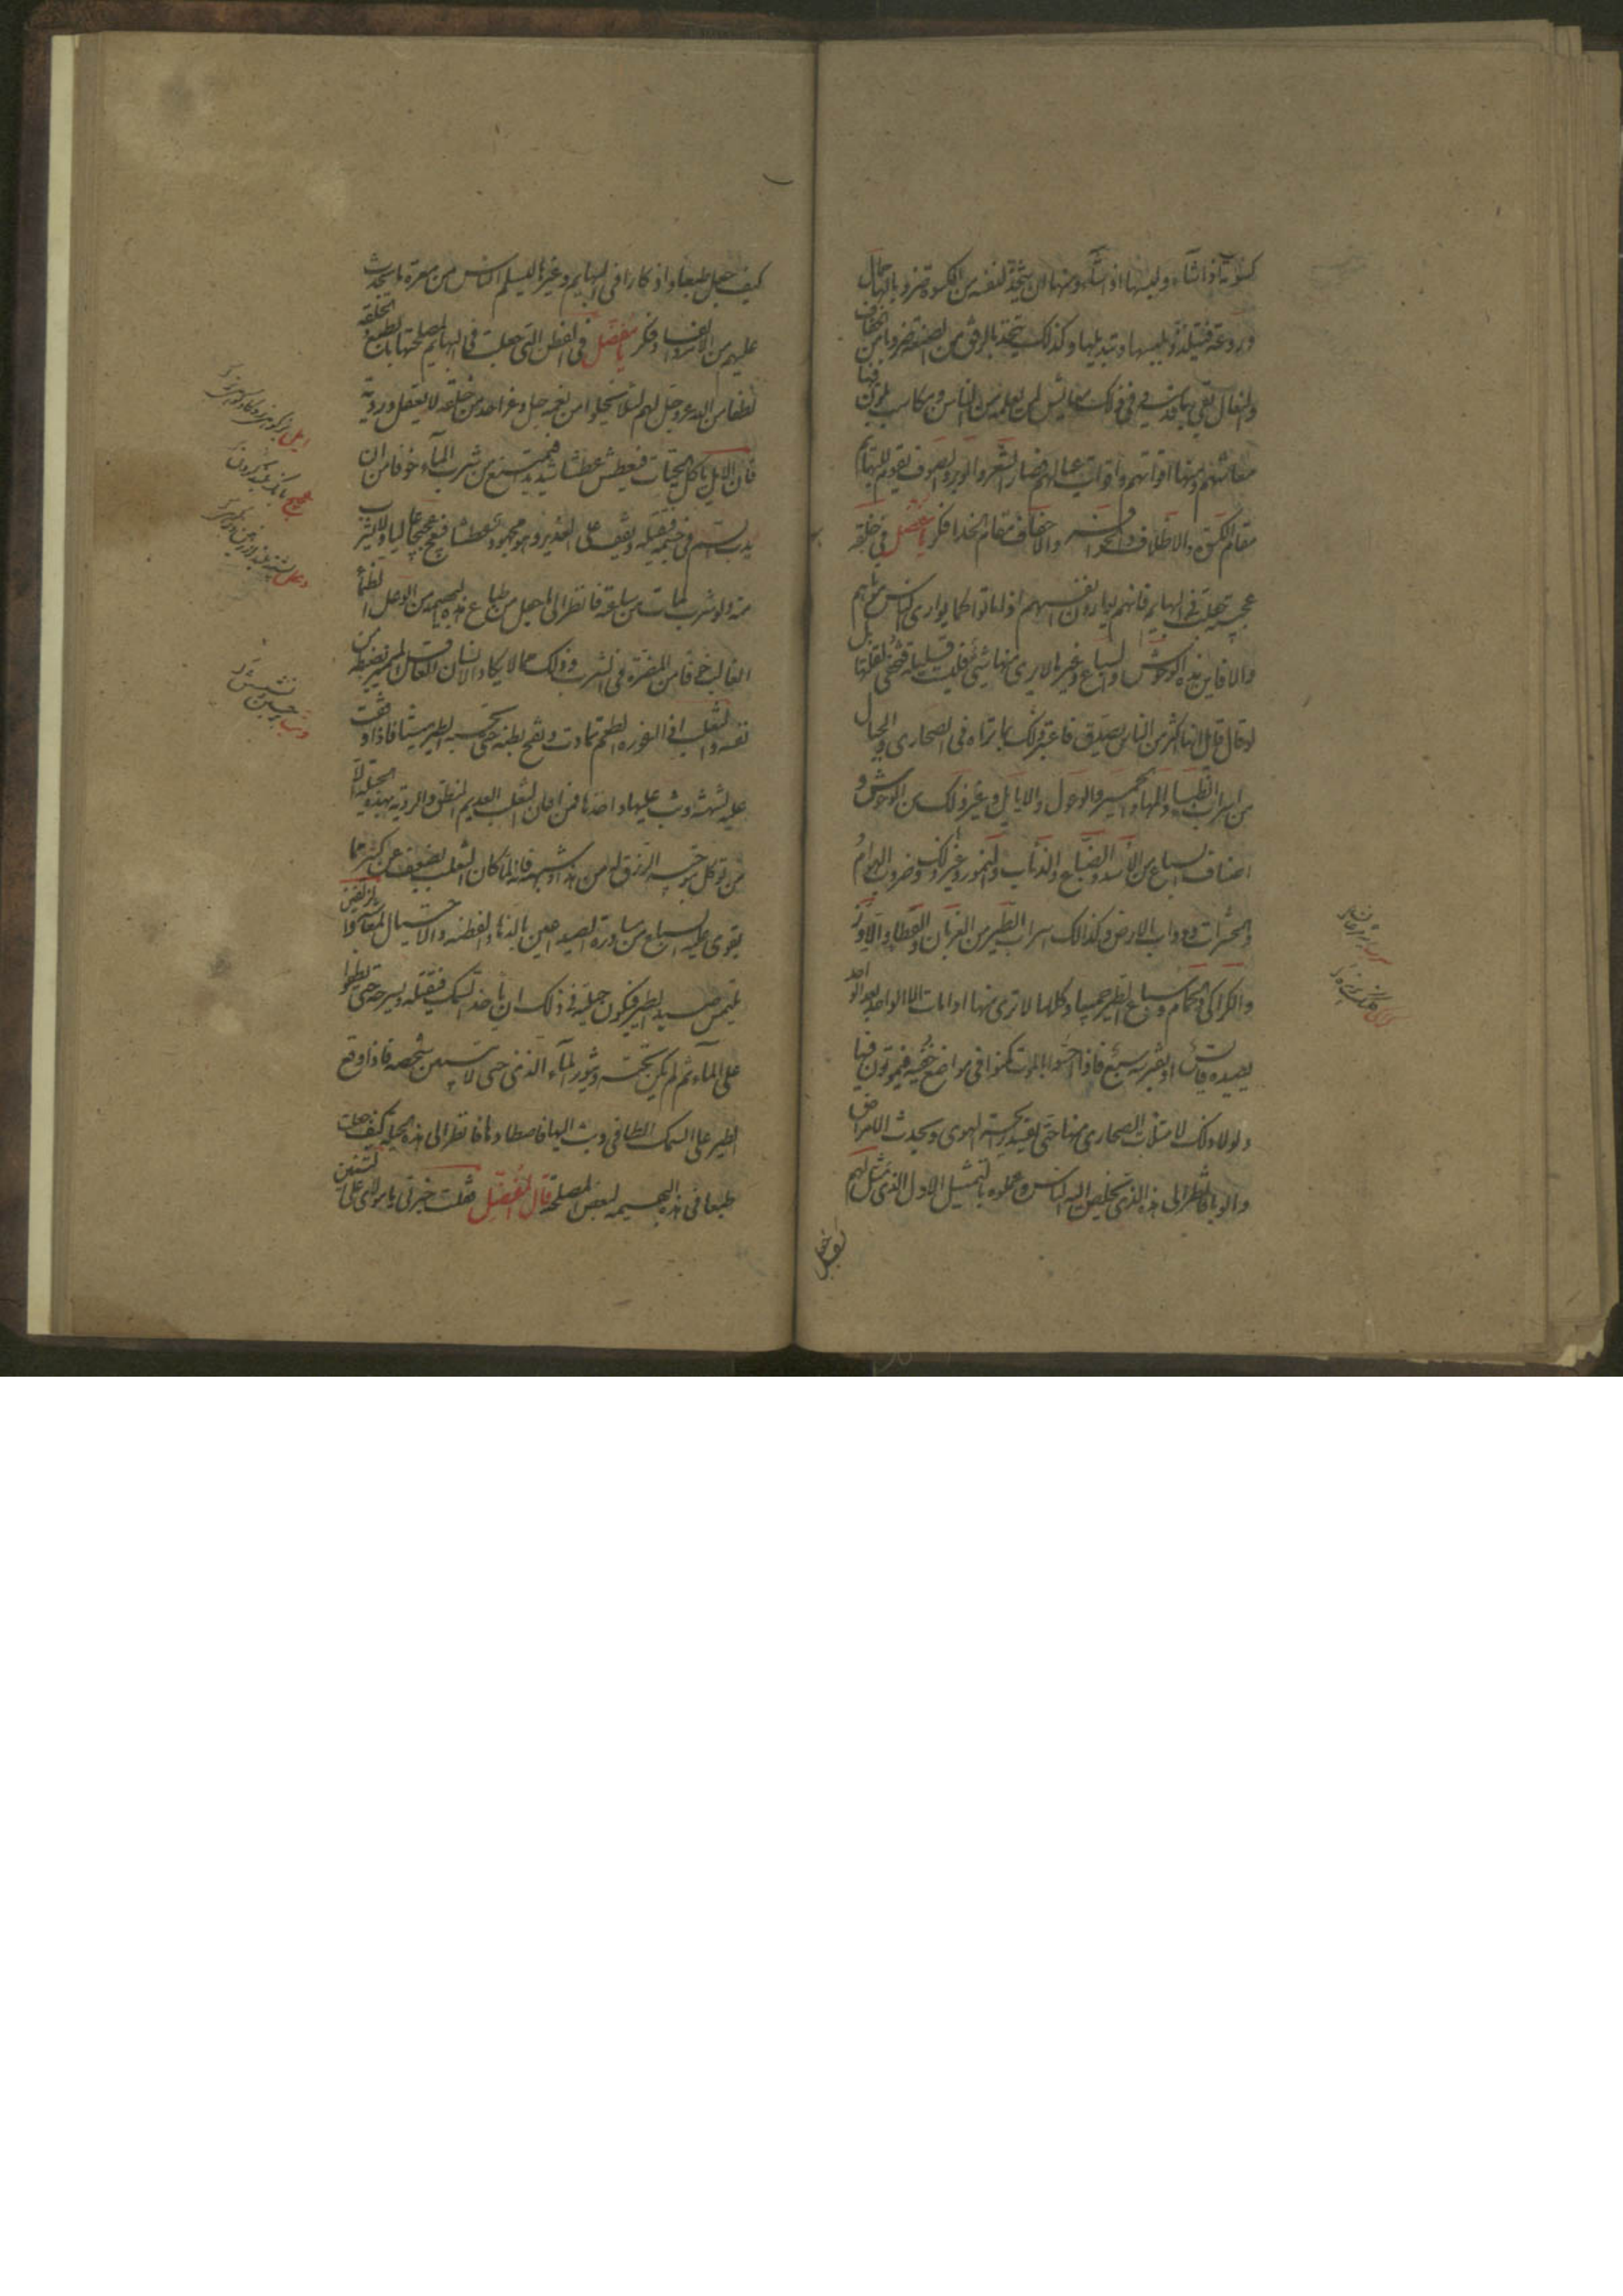 كسوته اذا شاء ولبسها اذا شاء ومنها ان يتخذ لنفسه من الكسوة ضروبا لها جمال
وروعة فيتلذذ بلبسها وتبديلها وكذلك يتخذ بالرفق من الصنعة ضروبا من الخفاف
والنعال يقي بها قدميه وفي ذلك معايش لمن يعمله من الناس ومكاسب يكون فيها
معاشهم ومنها اقواتهم واقوات عيالهم فصار الشعر والوبر والصوف يقوم للبهائم
مقام الكسوة والاظلاف والحوافر والاخفاف مقام الحذاء فكر يا مفضل في خلقة
عجيبة جعلت في البهايم فانهم يوارون انفسهم اذا ماتوا كما يواري الناس موتاهم
والا فاين هذه الوحوش والسباع وغيرها لا يرى منها شيء وليست قليلة فتخفى لقلتها بل
لو قال قائل انها اكثر من الناس لصدق فاعتبر ذلك بما تراه في الصحاري والجبال
من اسراب الظباء والمها والحمير والوعول والايايل وغير ذلك من الوحوش و
اصناف السباع من الاسد والضباع والذئاب والنمور وغير ذلك وضروب الهوام
والحشرات ودواب الارض وكذلك اسراب الطير من الغربان والقطا والاوز
والكراكي والحمام وسباع الطير جميعا وكلها لا ترى منها اذا ماتت الا الواحد بعد الواحد
يصيده قانص او يفترسه سبع فاذا احسوا بالموت كمنوا في مواضع خفية فيموتون فيها
ولولا ذلك لامتلأت الصحاري منها حتى تفسد رائحة الهوى ويحدث الامراض
والوباء فانظر الى هذا الذي يخلص اليه الناس وعملوه بالتمثيل الاول الذي مثل لهم
كيف جعل طبعا واذكارا في البهايم وغيرها ليسلم الناس من معرة ما يحدث
عليهم من الامراض والفساد فكر يا مفضل في الفطن التي جعلت في البهايم لمصلحتها بالطبع والخلقة
لطفا من الله عز وجل لهم لئلا يخلوا من نعمه جل وعز احد من خلقه لا بعقل وروية
فان الايل ياكل الحيات فيعطش عطشا شديدا فيمتنع من شرب الماء خوفا من ان
يدب السم في جسمه فيقتله ويقف على الغدير وهو مجهود عطشا فيعج عجيجا عاليا ولا يشرب
منه ولو شرب لمات من ساعته فانظر الى ما جعل من طباع هذه البهيمة من تحمل الظمأ
الغالب خوفا من المضرة في الشرب وذلك مما لا يكاد الانسان العاقل المميز يضبطه من
نفسه والثعلب اذا اعوزه الطعم تماوت ونفخ بطنه حتى يحسبه الطير ميتا فاذا وقعت
عليه لتنهشه وثب عليها واخذها فمن اعان الثعلب العديم النطق والروية بهذه الحيلة الا
من توكل بتوجيه الرزق له من هذا وشبهه فانه لما كان الثعلب يضعف عن كثير مما
يقوى عليه السباع من مساورة الصيد اعين بالدهاء والفطنة والاحتيال لمعاشه والدلفين
يلتمس صيد الطير فيكون حيلته في ذلك ان يأخذ السمك فيقتله ويسرحه حتى يطفوا
على الماء ثم يكمن تحته ويثور الماء الذي حتى لا يتبين شخصه فاذا وقع
الطير على السمك الطافي وثب اليها فاصطادها فانظر الى هذه الحيلة كيف جعلت
طبعا في هذه البهيمة لبعض المصلحة قال المفضل فقلت خبرني يا مولاي عن التنين